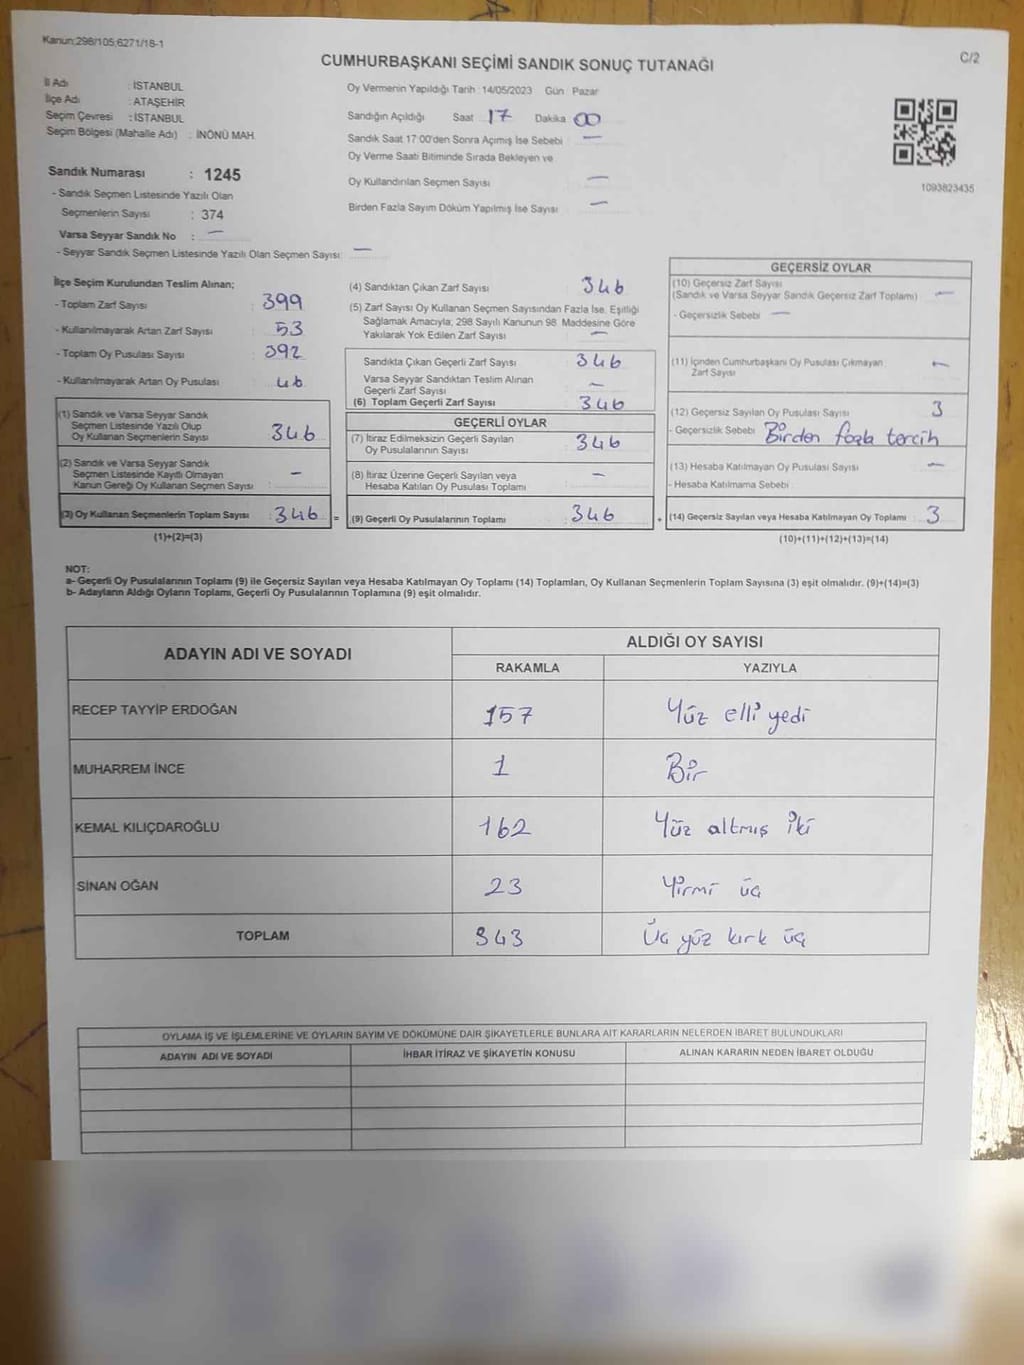 Kanun:298/105;6271/18-1
C/2
CUMHURBAŞKANI SEÇİMİ SANDIK SONUÇ TUTANAĞI
İl Adı : İSTANBUL
İlçe Adı : ATAŞEHİR
Seçim Çevresi : İSTANBUL
Seçim Bölgesi (Mahalle Adı) : İNÖNÜ MAH.
Sandık Numarası : 1245
- Sandık Seçmen Listesinde Yazılı Olan
Seçmenlerin Sayısı : 374
Varsa Seyyar Sandık No : —
- Seyyar Sandık Seçmen Listesinde Yazılı Olan Seçmen Sayısı: —
Oy Vermenin Yapıldığı Tarih : 14/05/2023 Gün : Pazar
Sandığın Açıldığı Saat 17 Dakika 00
Sandık Saat 17:00'den Sonra Açımış İse Sebebi —
Oy Verme Saati Bitiminde Sırada Bekleyen ve
Oy Kullandırılan Seçmen Sayısı —
Birden Fazla Sayım Döküm Yapılmış İse Sayısı —
1093823435
İlçe Seçim Kurulundan Teslim Alınan;
- Toplam Zarf Sayısı : 399
- Kullanılmayarak Artan Zarf Sayısı : 53
- Toplam Oy Pusulası Sayısı : 392
- Kullanılmayarak Artan Oy Pusulası : 46
(1) Sandık ve Varsa Seyyar Sandık
Seçmen Listesinde Yazılı Olup
Oy Kullanan Seçmenlerin Sayısı : 346
(2) Sandık ve Varsa Seyyar Sandık
Seçmen Listesinde Kayıtlı Olmayan
Kanun Gereği Oy Kullanan Seçmen Sayısı : —
(3) Oy Kullanan Seçmenlerin Toplam Sayısı : 346 =
(1)+(2)=(3)
(4) Sandıktan Çıkan Zarf Sayısı 346
(5) Zarf Sayısı Oy Kullanan Seçmen Sayısından Fazla İse, Eşitliği
Sağlamak Amacıyla; 298 Sayılı Kanunun 98. Maddesine Göre
Yakılarak Yok Edilen Zarf Sayısı —
Sandıkta Çıkan Geçerli Zarf Sayısı 346
Varsa Seyyar Sandıktan Teslim Alınan
Geçerli Zarf Sayısı —
(6) Toplam Geçerli Zarf Sayısı 346
GEÇERLİ OYLAR
(7) İtiraz Edilmeksizin Geçerli Sayılan
Oy Pusulalarının Sayısı 346
(8) İtiraz Üzerine Geçerli Sayılan veya
Hesaba Katılan Oy Pusulası Toplamı —
(9) Geçerli Oy Pusulalarının Toplamı 346 +
GEÇERSİZ OYLAR
(10) Geçersiz Zarf Sayısı
(Sandık ve Varsa Seyyar Sandık Geçersiz Zarf Toplamı) —
- Geçersizlik Sebebi —
(11) İçinden Cumhurbaşkanı Oy Pusulası Çıkmayan
Zarf Sayısı —
(12) Geçersiz Sayılan Oy Pusulası Sayısı 3
- Geçersizlik Sebebi Birden fazla tercih
(13) Hesaba Katılmayan Oy Pusulası Sayısı —
- Hesaba Katılmama Sebebi
(14) Geçersiz Sayılan veya Hesaba Katılmayan Oy Toplamı : 3
(10)+(11)+(12)+(13)=(14)
NOT:
a- Geçerli Oy Pusulalarının Toplamı (9) ile Geçersiz Sayılan veya Hesaba Katılmayan Oy Toplamı (14) Toplamları, Oy Kullanan Seçmenlerin Toplam Sayısına (3) eşit olmalıdır. (9)+(14)=(3)
b- Adayların Aldığı Oyların Toplamı, Geçerli Oy Pusulalarının Toplamına (9) eşit olmalıdır.
ADAYIN ADI VE SOYADI ALDIĞI OY SAYISI
RAKAMLA YAZIYLA
RECEP TAYYİP ERDOĞAN 157 Yüz elli yedi
MUHARREM İNCE 1 Bir
KEMAL KILIÇDAROĞLU 162 Yüz altmış iki
SİNAN OĞAN 23 Yirmi üç
TOPLAM 343 Üç yüz kırk üç
OYLAMA İŞ VE İŞLEMLERİNE VE OYLARIN SAYIM VE DÖKÜMÜNE DAİR ŞİKAYETLERLE BUNLARA AİT KARARLARIN NELERDEN İBARET BULUNDUKLARI
ADAYIN ADI VE SOYADI İHBAR İTİRAZ VE ŞİKAYETİN KONUSU ALINAN KARARIN NEDEN İBARET OLDUĞU